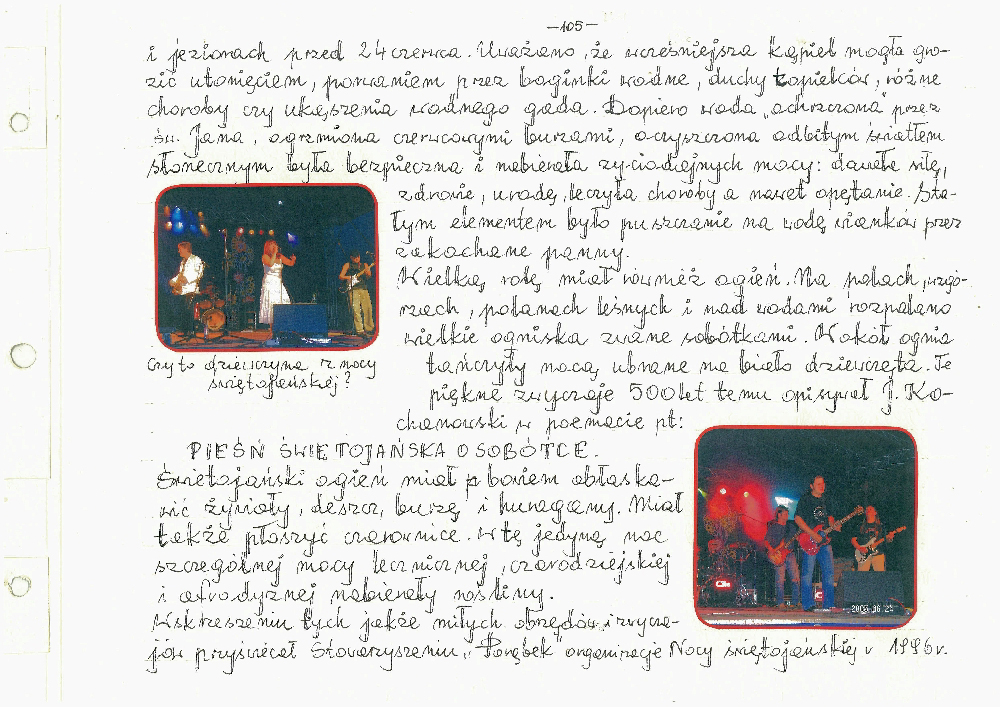 —105—
i jezionach przed 24 czerwca. Uważano, że wcześniejsza kąpiel mogła gro-
zić utonięciem, porwaniem przez boginki wodne, duchy topielców, różne
choroby czy ukąszenia wodnego gada. Dopiero woda „ochrzczona" przez
św. Jana, ogrzmiona czerwcowymi burzami, oczyszczona odbitym światłem
słonecznym była bezpieczna i nabierała życiodajnych mocy: dawała siłę,
zdrowie, urodę, leczyła choroby a nawet opętanie. Sta-
łym elementem było puszczanie na wodę wianków przez
zakochane panny.
Wielką rolę miał również ogień. Na polach, wzgó-
rzach, polanach leśnych i nad wodami rozpalano
wielkie ogniska zwane sobótkami. Wokół ognia
tańczyły nocą ubrane na biało dziewczęta. Te
piękne zwyczaje 500 lat temu opisywał J. Ko-
chanowski w poemacie pt:
PIEŚŃ ŚWIĘTOJAŃSKA O SOBÓTCE.
Czy to dziewczyna z nocy
świętojańskiej?
Świetojański ogień miał p bowiem obłaska-
wić żywioły, deszcz, burzę i huragany. Miał
także płoszyć czarownice. W tę jedyną noc
szczególnej mocy leczniczej, czarodziejskiej
i afrodyznej nabierały rośliny.
Wskrzeszeniu tych jakże miłych obrzędów i zwycza-
jów przyświecał Stowarzyszeniu „Porębek" organizacje Nocy świętojańskiej w 1996r.